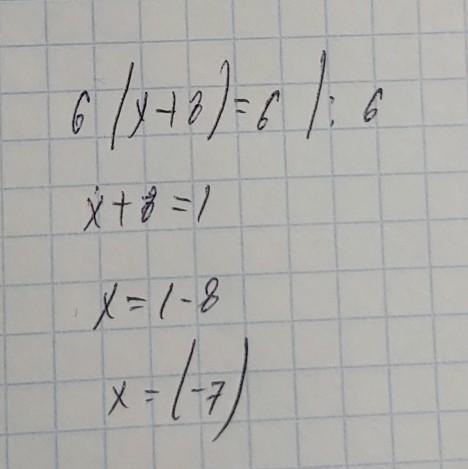 6 (x+8)=6 |: 6
x+8=1
x=1-8
x=(-7)